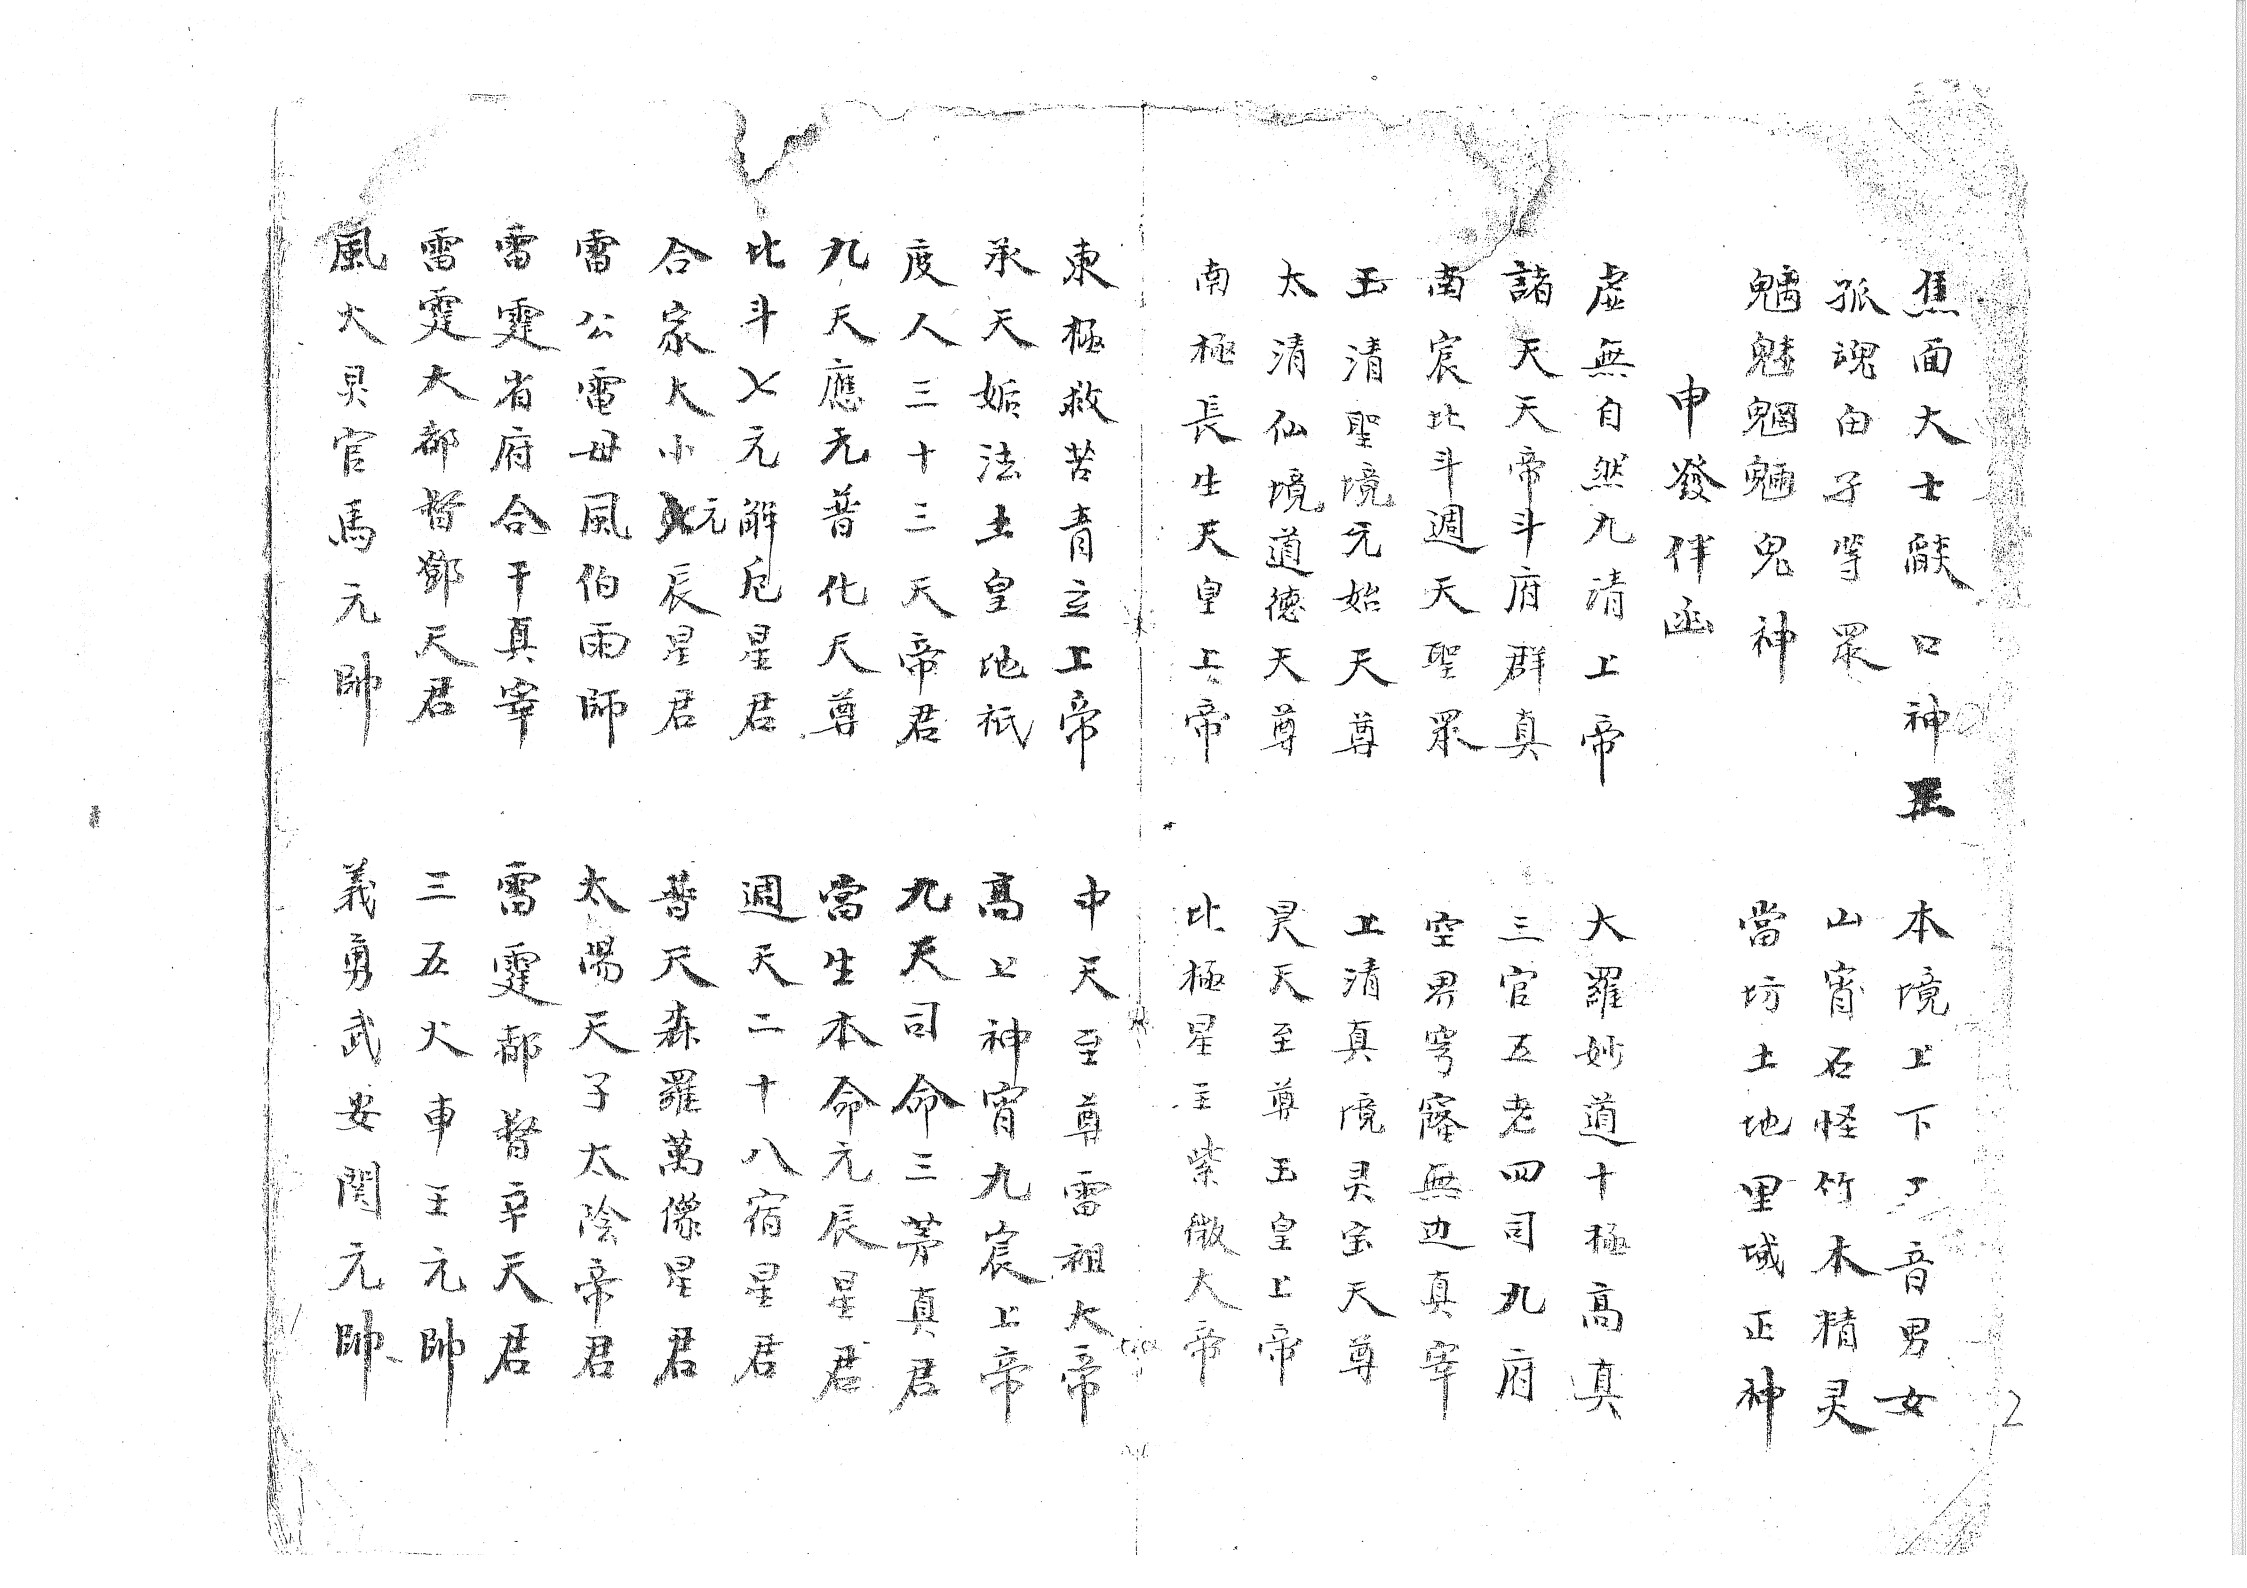 焦面大士厭口神王　本境上下了音男女
孤魂由子等眾　山宵石怪竹木精灵
魑魅魍魎鬼神　當坊土地里域正神
申發伴函
虛無自然九清上帝　大羅妙道十極高真
諸天天帝斗府群真　三官五老四司九府
南宸北斗週天聖眾　空界穹窿無边真宰
玉清聖境元始天尊　上清真境灵宝天尊
太清仙境道德天尊　昊天至尊玉皇上帝
南極長生天皇上帝　北極星主紫微大帝
東極救苦青玄上帝　中天至尊雷祖大帝
承天姤法土皇地祇　高上神宵九宸上帝
度人三十三天帝君　九天司命三茅真君
九天應元普化天尊　當生本命元辰星君
北斗七元解厄星君　週天二十八宿星君
合家大小元辰星君　普天森羅萬像星君
雷公電母風伯雨師　太陽天子太陰帝君
雷霆省府合干真宰　雷霆都督辛天君
雷霆大都督鄧天君　三五火車王元帥
風火灵官馬元帥　義勇武安関元帥
2